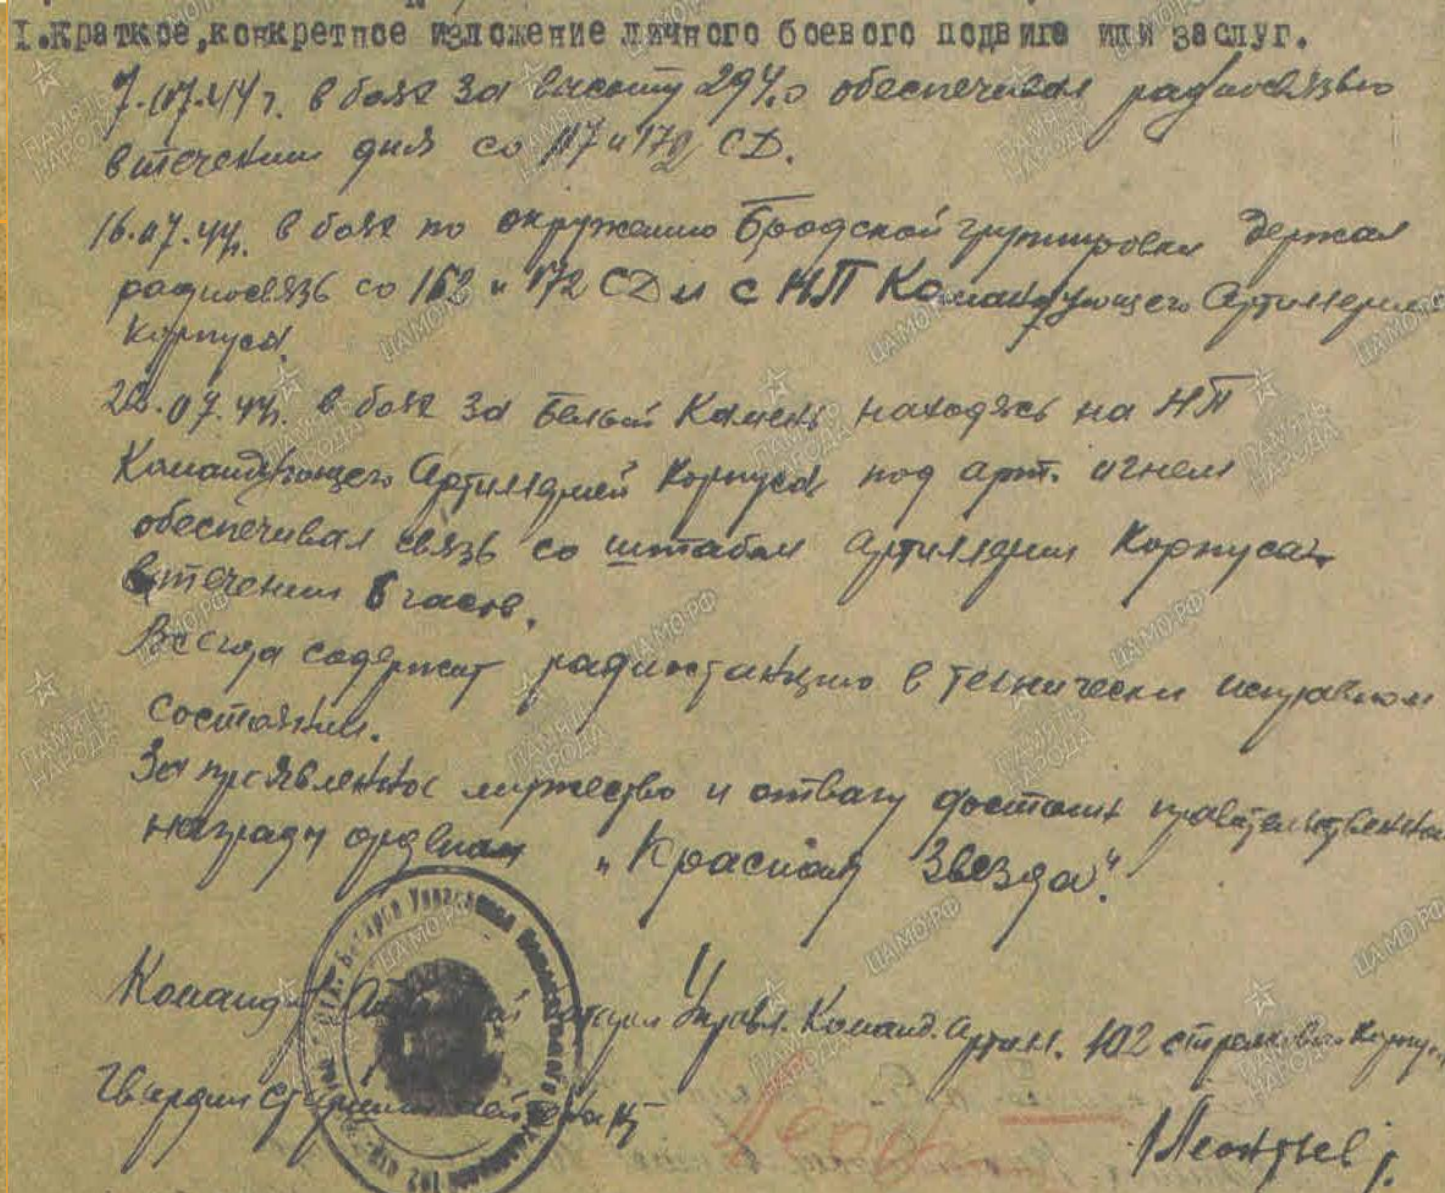 I.Краткое,конкретное изложение личного боевого подвига или заслуг.
7.07.44г. в боях за высоту 294.0 обеспечивал радиосвязью
втечении дня со 117 и 172 СД.
16.07.44г. в боях по окружению Бродской группировки держал
радиосвязь со 162 и 172 СД и с НП Командующего Артиллерией
Корпуса.
22.07.44г. в боях за Белый Камень находясь на НП
Командующего Артиллерией Корпуса под арт. огнем
обеспечивал связь со штабом Артиллерии Корпуса
втечении 6 часов.
Всегда содержит радиостанцию в технически исправном
состоянии.
За проявленное мужество и отвагу достоин правительственной
награды орденом „Красная Звезда".
Командир батареи Управл. Команд. Артил. 102 стрелкового Корпуса
Гвардии старший лейтенант
Леонтьев
ЦАМО.РФ
ПАМЯТЬ НАРОДА